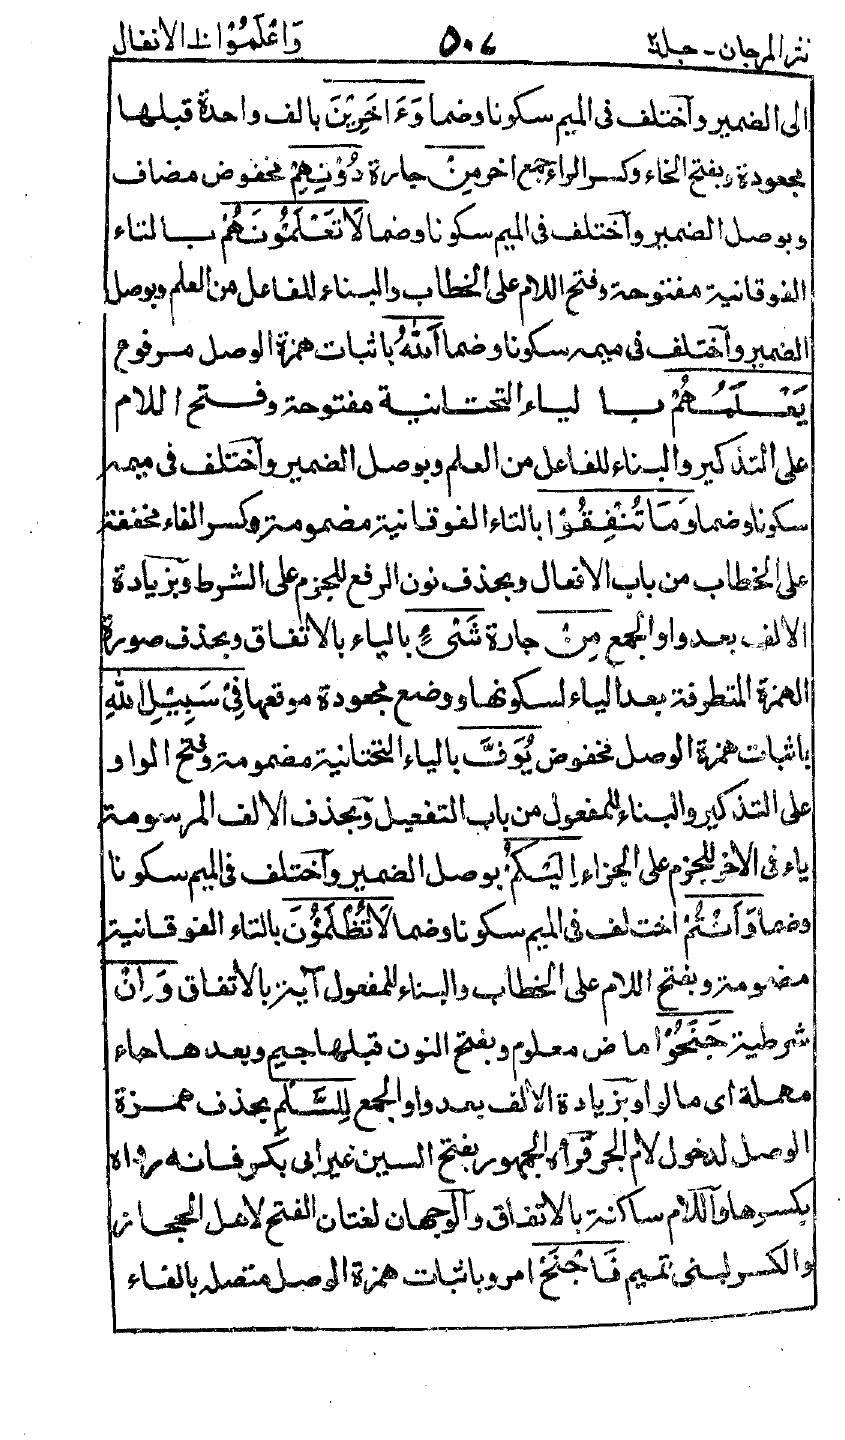 نثر المرجان - جلد ٢ ٥٠٧ وَاعْلَمُوْا ١٠ الانفال
الى الضمير واختلف فى الميم سكونا وضما وَءَاخَرِيْنَ بالف واحدة قبلها
مجعودة وبفتح الخاء وكسر الراء جمع اخر مِنْ جارة دُوْنِهِمْ مخفوض مضاف
وبوصل الضمير واختلف فى الميم سكونا وضما لَا تَعْلَمُوْنَهُمْ بالتاء
الفوقانية مفتوحة وفتح اللام على الخطاب والبناء للفاعل من العلم وبوصل
الضمير واختلف فى ميمه سكونا وضما اَللّٰهُ باثبات همزة الوصل مرفوع
يَعْلَمُهُمْ بالياء التحتانية مفتوحة وفتح اللام
على التذكير والبناء للفاعل من العلم وبوصل الضمير واختلف فى ميمه
سكونا وضما وَمَا تُنْفِقُوْا بالتاء الفوقانية مضمومة وكسر الفاء مخففة
على الخطاب من باب الافعال وبحذف نون الرفع للجزم على الشرط وبزيادة
الالف بعد واو الجمع مِنْ جارة شَىْءٍ بالياء بالاتفاق وبحذف صورة
الهمزة المتطرفة بعد الياء لسكونها ووضع مجعودة موقعها فِىْ سَبِيْلِ اللّٰهِ
باثبات همزة الوصل مخفوض يُوَفَّ بالياء التحتانية مضمومة وفتح الواو
على التذكير والبناء للمفعول من باب التفعيل وبحذف الالف المرسومة
ياء فى الاخر للجزم على الجزاء اِلَيْكُمْ بوصل الضمير واختلف فى الميم سكونا
وضما وَاَنْتُمْ اختلف فى الميم سكونا وضما لَا تُظْلَمُوْنَ بالتاء الفوقانية
مضمومة وبفتح اللام على الخطاب والبناء للمفعول آية بالاتفاق وَاِنْ
شرطية جَنَحُوْا ماض معلوم وبفتح النون قبلها جيم وبعدها حاء
مهملة اى مالوا وبزيادة الالف بعد واو الجمع لِلسَّلْمِ بحذف همزة
الوصل لدخول لام الجر قرأه الجمهور بفتح السين غير ابى بكر فانه رواه
بكسرها واللام ساكنة بالاتفاق والوجهان لغتان الفتح لاهل الحجاز
والكسر لبنى تميم فَاجْنَحْ امر وباثبات همزة الوصل متصلة بالفاء